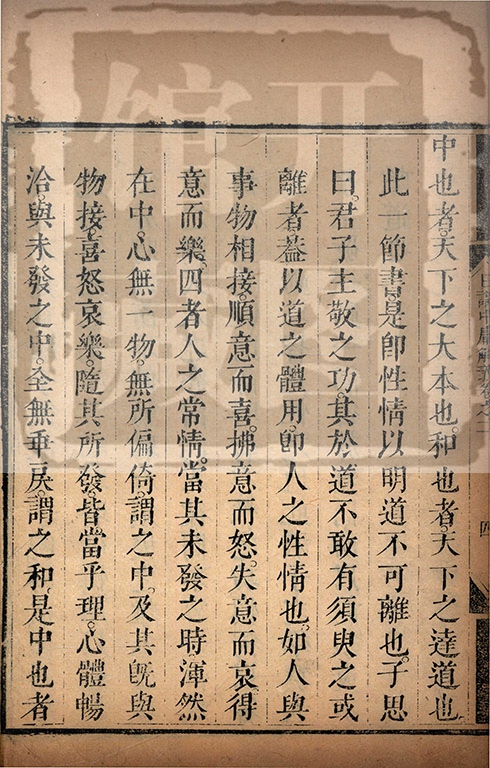 中也者。天下之大本也。和也者。天下之達道也
此一節書。是卽性情以明道不可離也。子思
曰。君子主敬之功。其於道不敢有須臾之或
離者。葢以道之體用。卽人之性情也。如人與
事物相接。順意而喜。拂意而怒。失意而哀。得
意而樂。四者人之常情。當其未發之時。渾然
在中。心無一物。無所偏倚。謂之中。及其旣與
物接。喜怒哀樂。隨其所發。皆當乎理。心體暢
洽。與未發之中。全無乖戾。謂之和。是中也者
四